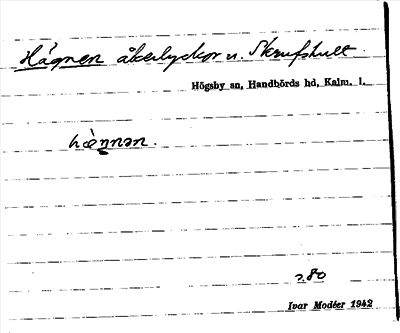 Hägnen åkerlyckor u. Skrufshult.
Högsby sn, Handbörds hd, Kalm. l.
hæ̀ŋnən.
s. 80
Ivar Modéer 1942